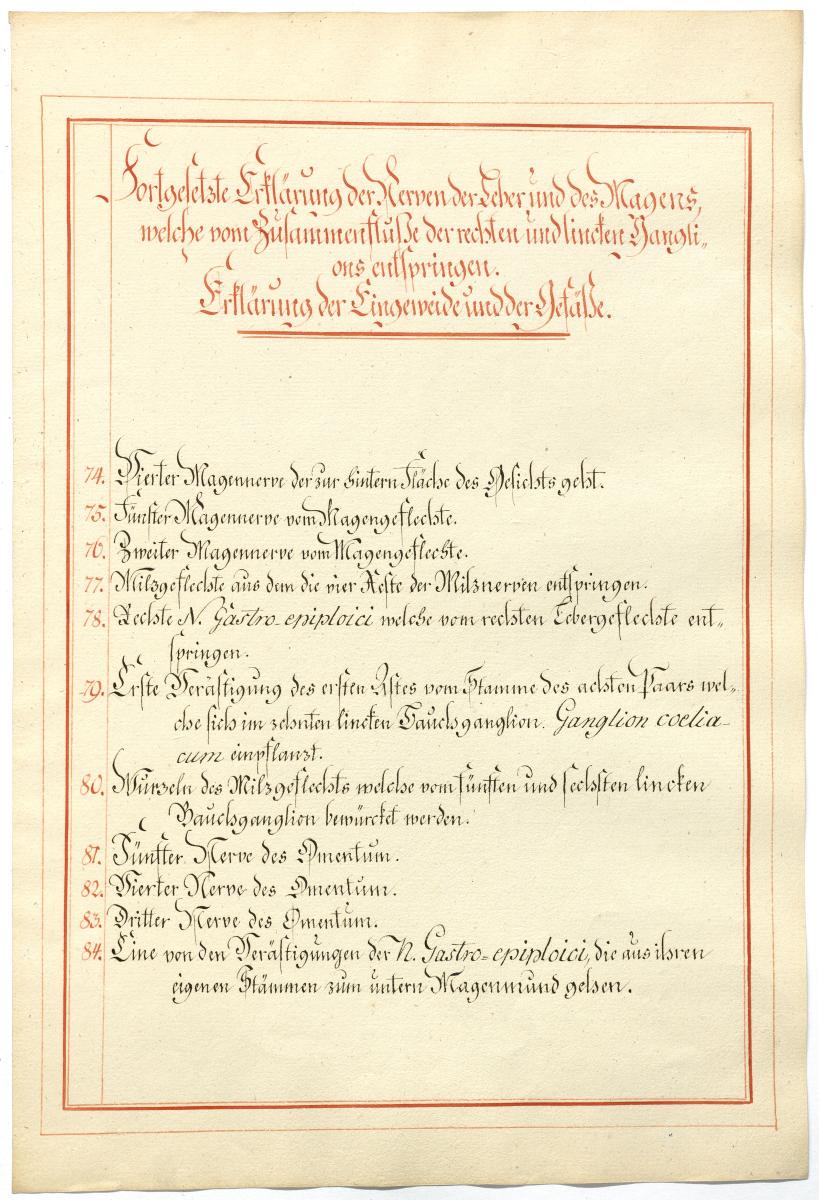 Fortgesetzte Erklärung der Nerven der Leber und des Magens,
welche vom Zusammenflußse der rechten und lincken Gangli„
ons entspringen.
Erklärung der Eingeweide und der Gefäße.
74. Vierter Magennerve der zur hintern Fläche des Gesichts geht.
75. Fünfter Magennerve vom Magengeflechte.
76. Zweiter Magennerve vom Magengeflechte.
77. Milzgeflechte aus dem die vier Aeste der Milznerven entspringen.
78. Rechte N. Gastro-epiploici welche vom rechten Lebergeflechte ent„
springen.
79. Erste Verästigung des ersten Astes vom Stamme des achten Paars wel„
che sich im zehnten lincken Bauchganglion. Ganglion coelia-
cum einpflanzt.
80. Wurzeln des Milzgeflechts welche vom fünften und sechsten lincken
Bauchganglion bewürcket werden.
81. Fünfter Nerve des Omentum.
82. Vierter Nerve des Omentum.
83. Dritter Nerve des Omentum.
84. Eine von den Verästigungen der N. Gastro=epiploici, die aus ihren
eigenen Stämmen zum untern Magenmund gehen.